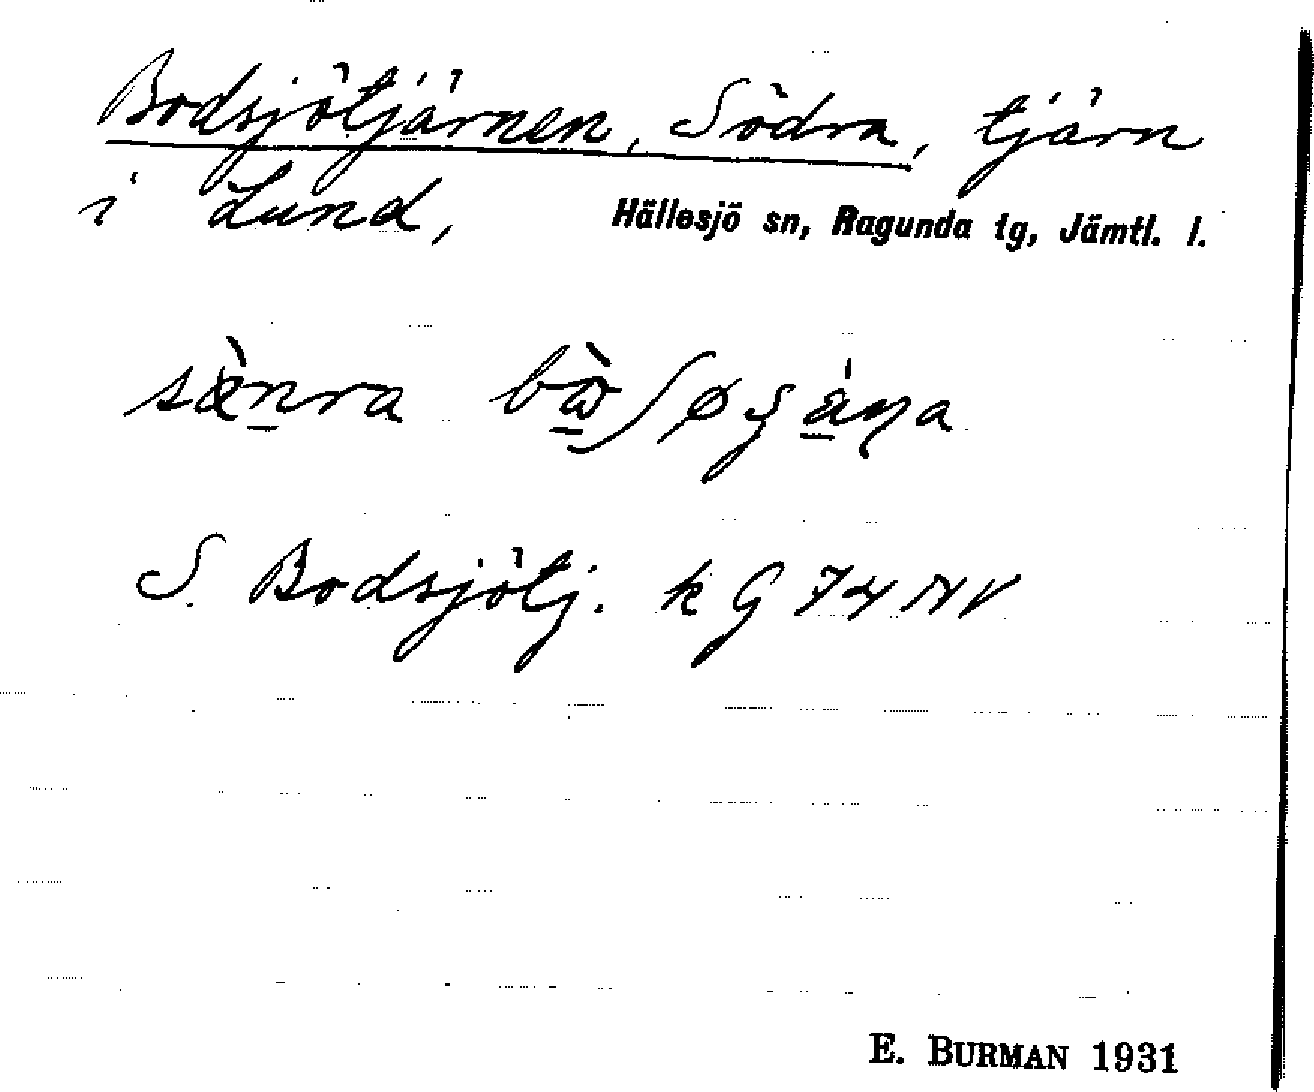 Bodsjötjärnen, Södra, tjärn
i Lund, Hällesjö sn, Ragunda tg, Jämtl. l.
S. Bodsjötj. k G 74 NV
E. BURMAN 1931